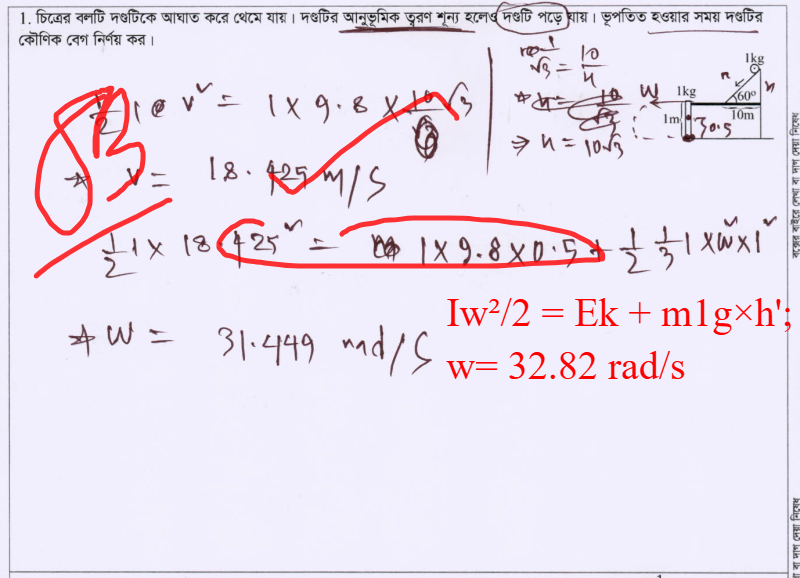 1. চিত্রের বলটি দণ্ডটিকে আঘাত করে থেমে যায়। দণ্ডটির আনুভূমিক ত্বরণ শূন্য হলেও দণ্ডটি পড়ে যায়। ভূপতিত হওয়ার সময় দণ্ডটির
কৌণিক বেগ নির্ণয় কর।
√3 = 10/h
⇒ h = 10√3
1kg
1kg
60°
10m
1m
0.5
W
h
1/2 1 v² = 1 × 9.8 × 10√3
v = 18.425 m/s
1/2 1 × 18.425² = 1 × 9.8 × 0.5 + 1/2 1/3 1 × w² × 1²
w = 31.449 rad/s
Iw²/2 = Ek + m1g×h';
w= 32.82 rad/s